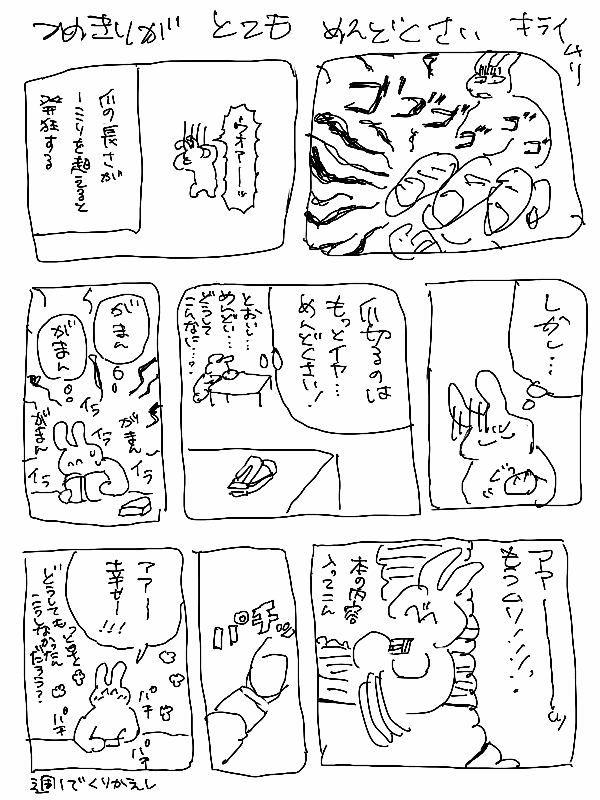 つめきりが とても めんどくさい キライ ムリ
ゴゴゴゴゴゴ
ウオアーーッ
爪の長さが
一ミリを超えると
発狂する
しかし…
爪切るのは
もっとイヤ…
めんどくさい！
とおい…
めんどい…
どうして
こんなに…。
がまん
がまん
がまん
がまん
イライライライラ
アアーーーッ
もうムリ!!!!
本の内容
入ってこん
パチッ
アアー
幸せー!!!
どうしてもっと
こうしなかったん
だろう？
パチ
パチ
週1でくりかえし